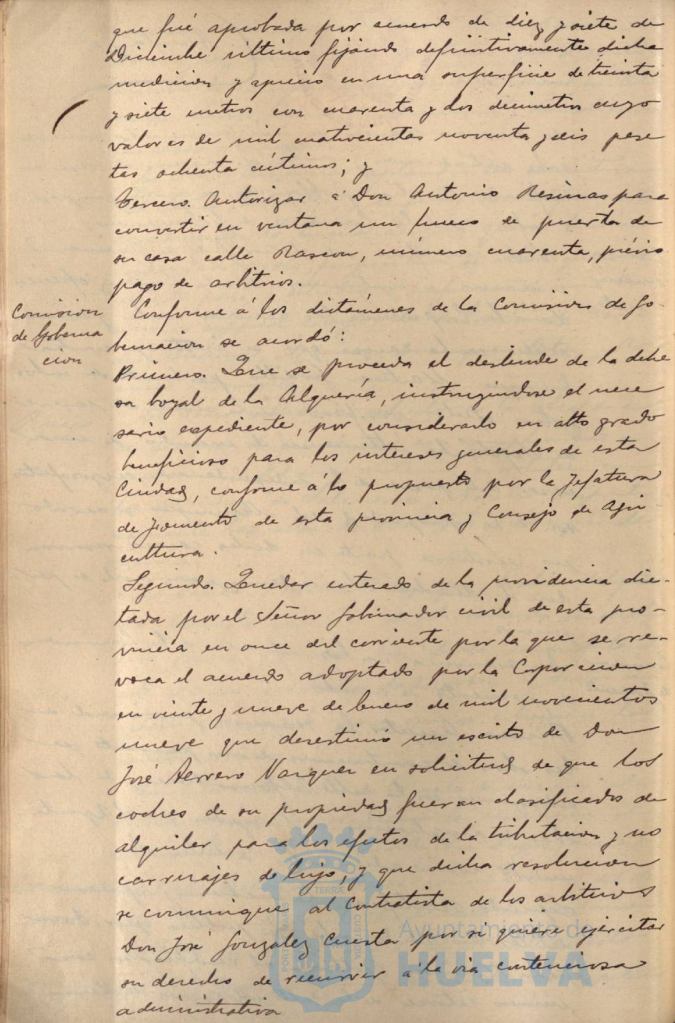 que fué aprobada por acuerdo de diez y siete de
Diciembre último fijándo definitivamente dicha
medicion y aprecio en una superficie de treinta
y siete metros con cuarenta y dos decimetros cuyo
valor es de mil cuatrocientas noventa y seis pese
tas ochenta céntimos; y
Tercero. Autorizar á Don Antonio Resinas para
convertir en ventana un hueco de puerta de
su casa calle Rascon, número cuarenta, prévio
pago de arbitrios.
Comision
de Goberna
cion
Conforme á los dictámenes de la Comision de Go-
bernacion se acordó:
Primero. Que se proceda el deslinde de la dehe
sa boyal de la Alquería, instruyéndose el nece
sario expediente, por considerarlo en alto grado
beneficioso para los intereses generales de esta
Ciudad, conforme á lo propuesto por la Jefatura
de fomento de esta provincia y Consejo de Agri
cultura.
Segundo. Quedar enterado de la providencia dic-
tada por el Señor Gobernador civil de esta pro-
vincia en once del corriente por la que se re-
voca el acuerdo adoptado por la Corporacion
en veinte y nueve de Enero de mil novecientos
nueve que desestimó un escrito de Don
José Herrero Vazquez en solicitud de que los
coches de su propiedad fueran clasificados de
alquiler para los efectos de la tributacion y no
carruajes de lujo, y que dicha resolucion
se comunique al Contratista de los arbitrios
Don José Gonzalez Cuesta por si quiere ejercitar
su derecho de recurrir á la via contenciosa
administrativa
Ayuntamiento de
HUELVA